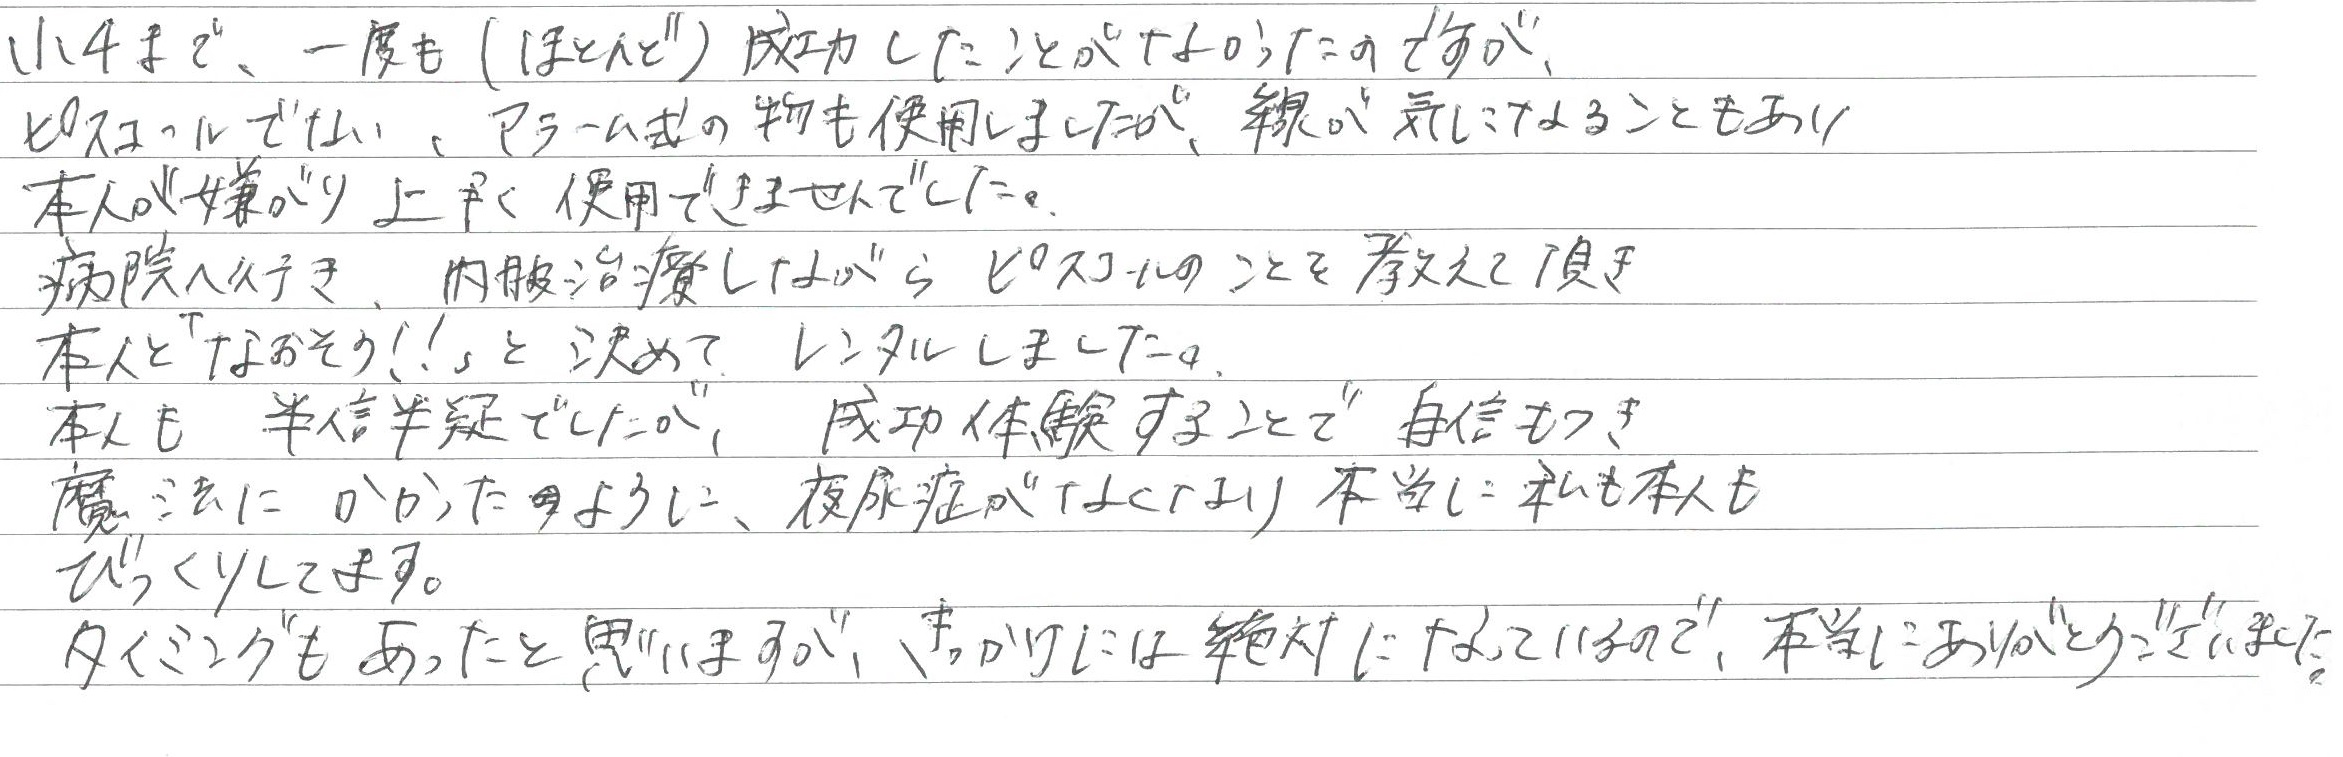 小4まで、一度も(ほとんど)成功したことがなかったのですが、
ピスコールでない、アラーム式の物も使用しましたが、線が気になることもあり
本人が嫌がり上手く使用できませんでした。
病院へ行き、内服治療しながらピスコールのことを教えて頂き
本人と「なおそう!!」と決めてレンタルしました。
本人も半信半疑でしたが、成功体験することで自信もつき
魔法にかかったように、夜尿症がなくなり本当に私も本人も
びっくりしてます。
タイミングもあったと思いますが、きっかけには絶対になっているので、本当にありがとうございました。